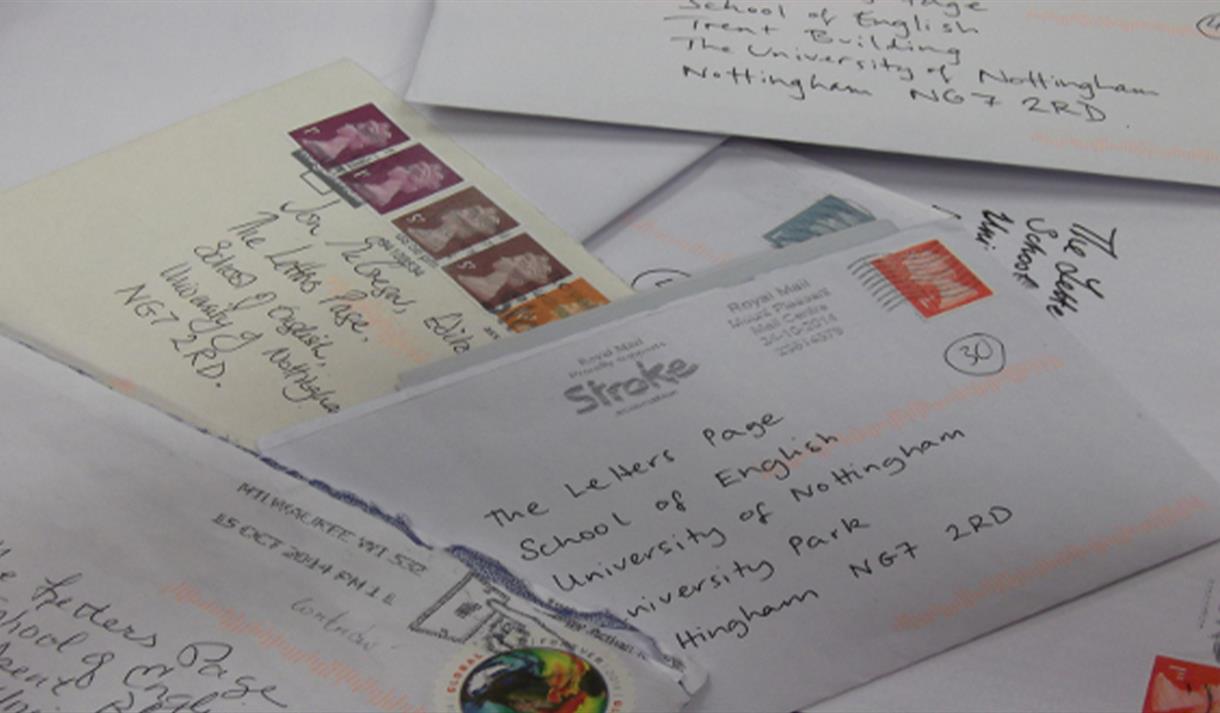 School of English
Trent Building
The University of Nottingham
Nottingham NG7 2RD
Editor
The Letters Page,
School of English,
University of Nottingha
NG7 2RD.
The
School
Uni
Royal Mail
Mount Pleasant
Mail Centre
2014
Royal Mail
Proudly supports
Stroke
association
30
The Letters Page
School of English
University of Nottingham
niversity Park
ttingham NG7 2RD
MILWAUKEE WI 532
15 OCT 2014 PM 1 L
Letters Page
School of Engl
GLOBAL
FOREVER
1st
1st